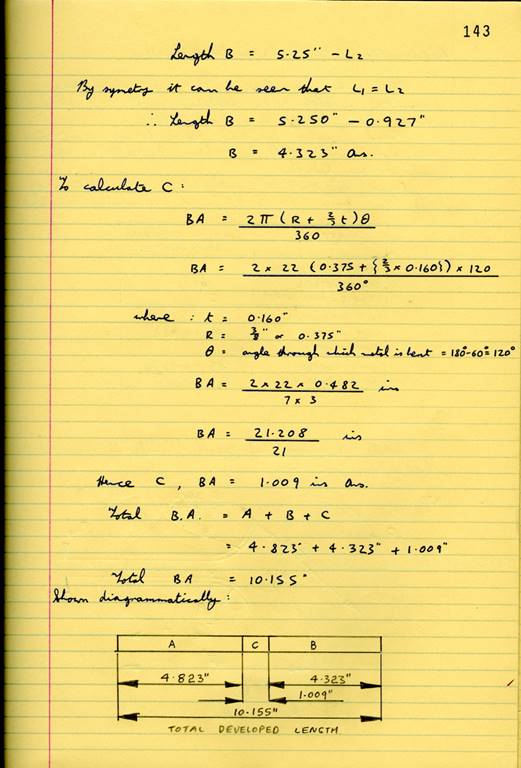 143
Length B = 5.25" - L2
By symetry it can be seen that L1 = L2
∴ Length B = 5.250" - 0.927"
B = 4.323" Ans.
To calculate C:
BA = 2π (R + 2/3 t)θ
360
BA = 2 x 22 (0.375 + {2/3 x 0.160}) x 120
360°
where : t = 0.160"
R = 3/8" or 0.375"
θ = angle through which metal is bent = 180°-60°=120°
BA = 2 x 22 x 0.482 ins
7 x 3
BA = 21.208 ins
21
Hence C, BA = 1.009 ins Ans.
Total B.A. = A + B + C
= 4.823" + 4.323" + 1.009"
Total BA = 10.155"
Shown diagrammatically:
A C B
4.823" 4.323"
1.009"
10.155"
TOTAL DEVELOPED LENGTH